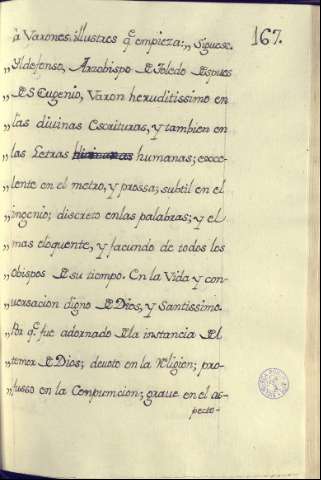 167.
à Varones illustres q.ᵉ empieza: „ Siguese.
„ Yldefonso, Arzobispo de Toledo despues
„ de S Eugenio, Varon heruditissimo en
„ las divinas Escrituras, y tambien en
„ las Letras humanas; exce-
„ lente en el metro, y prossa; subtil en el
„ ingenio; discreto enlas palabras; y el
„ mas eloquente, y facundo de todos los
„ Obispos de su tiempo. En la Vida y con-
„ versacion digno de Dios, y Santissimo.
„ Por q.ᵉ fue adornado de la instancia del
„ temor de Dios; devoto en la Religion; pro-
„ fusso en la Conpumcion; grave en el as-
pecto-